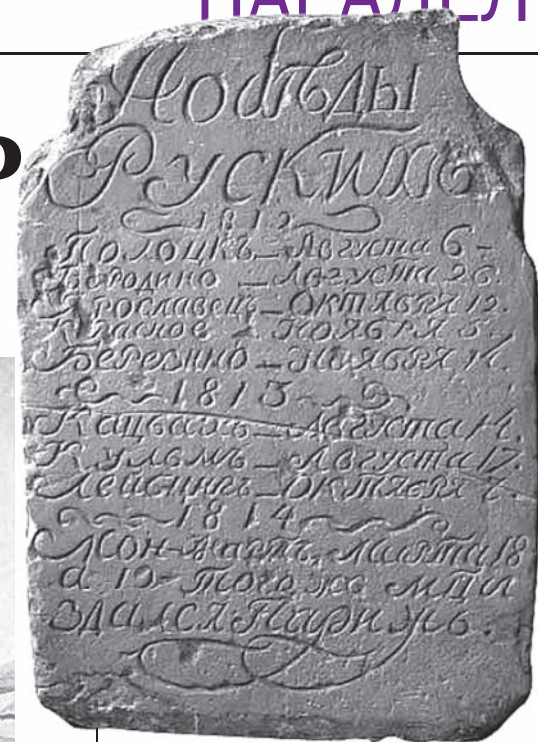 Побѣды
Рускихъ
1812
Полоцкъ – Августа 6 –
Бородино – Августа 26.
Ярославець – Октября 12.
Красное – Ноября 5.
Березино – Ноября 14.
1813
Кацбахъ – Августа 14.
Кульмъ – Августа 17.
Лейбцигъ – Октября
1814
Мон-
Марта 18
а 19 – Того же мца
здался Парижъ.